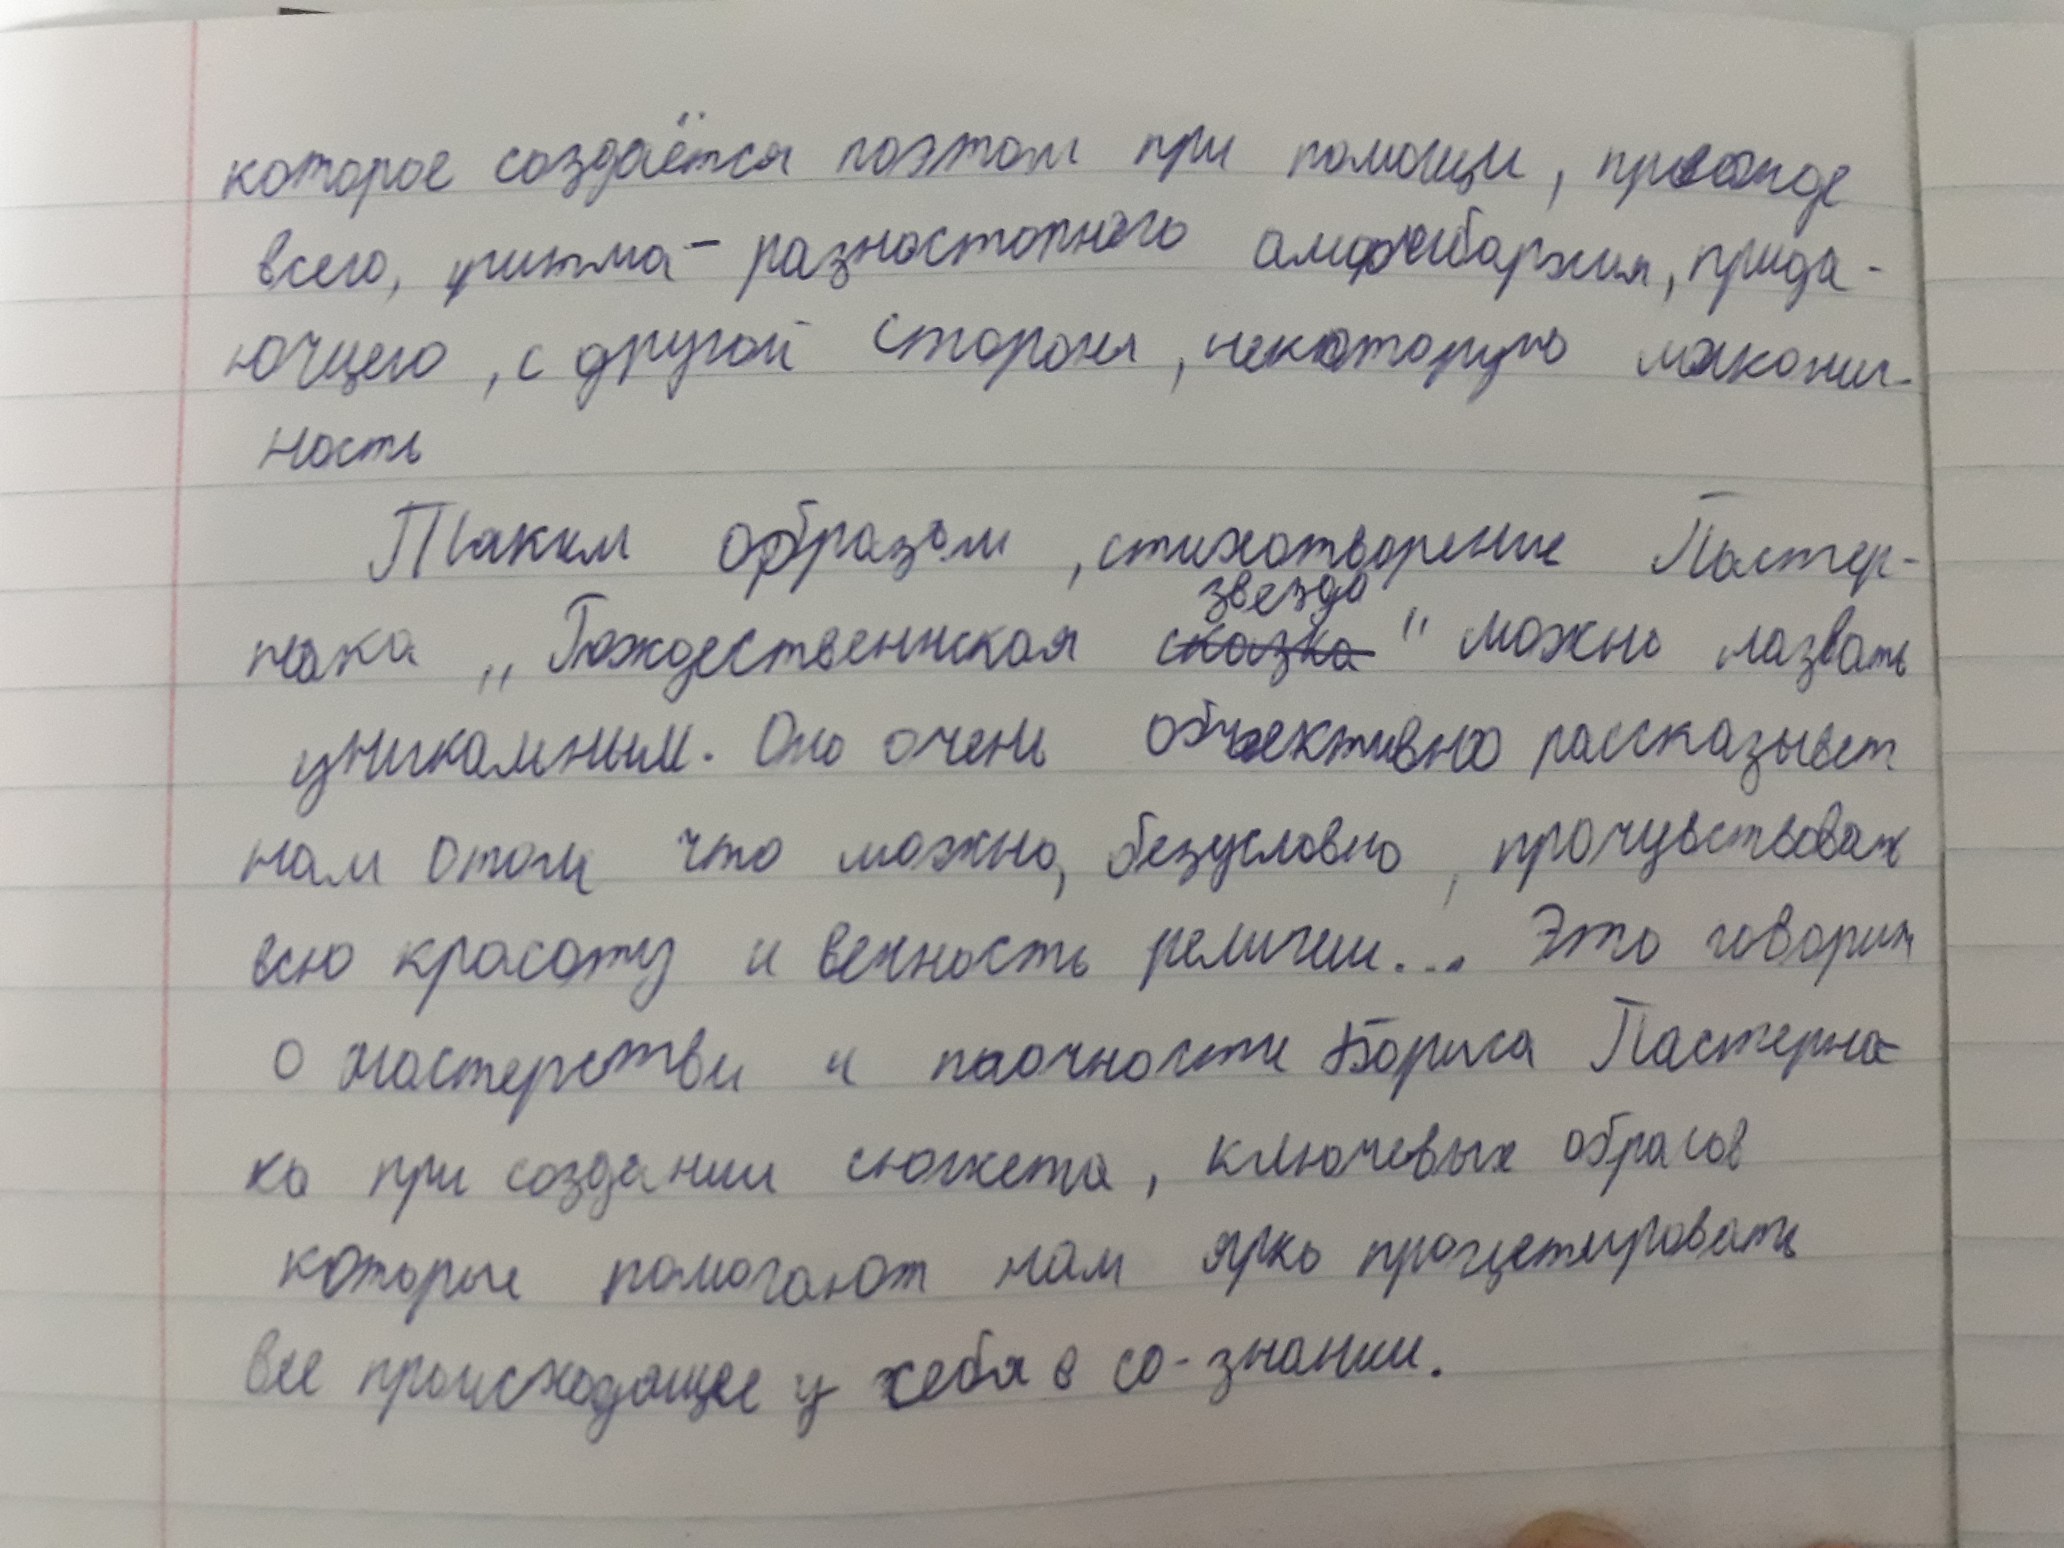 которое создаётся поэтом при помощи, прежде
всего, ритма - разносторнего амфибархия, прида-
ючщего, с другой стороны, некоторую лаконич-
ность
Таким образом, стихотворение Пастер-
нака „Рождественнская звезда сказка" можно назвать
уникальным. Оно очень объективно рассказывет
нам отом что можно, безусловно, прочувствовать
всю красоту и вечность религии... Это говорит
о мастерстви и Бориса Пастерна-
ка при создании сюжета, ключевых обрасов
которые помогают нам ярко
все происходящее у себя в со-знании.